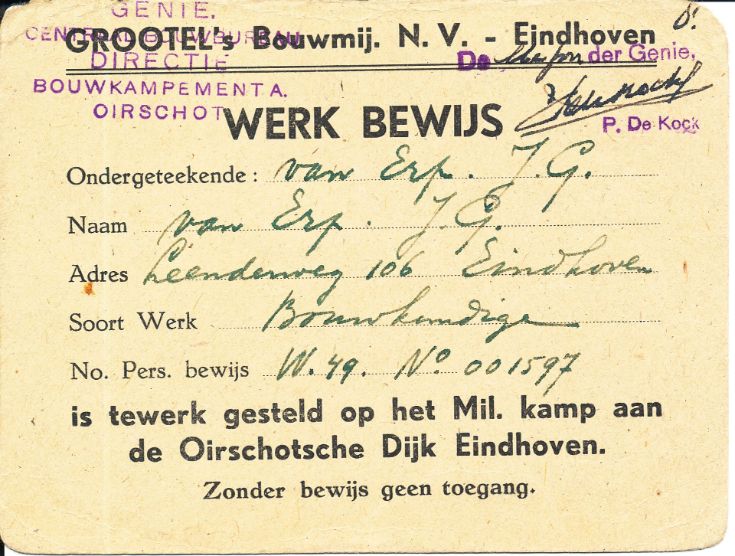 GENIE.
CENTRAAL BOUWBUREAU
DIRECTIE
BOUWKAMPEMENT A.
OIRSCHOT
GROOTEL's Bouwmij. N. V. - Eindhoven
De der Genie,
P. De Kock
WERK BEWIJS
Ondergeteekende: van Erp. J. G.
Naam van Erp. J. G.
Adres Leenderweg 106 Eindhoven
Soort Werk Bouwkundige
No. Pers. bewijs W. 49. No 001597
is tewerk gesteld op het Mil. kamp aan
de Oirschotsche Dijk Eindhoven.
Zonder bewijs geen toegang.